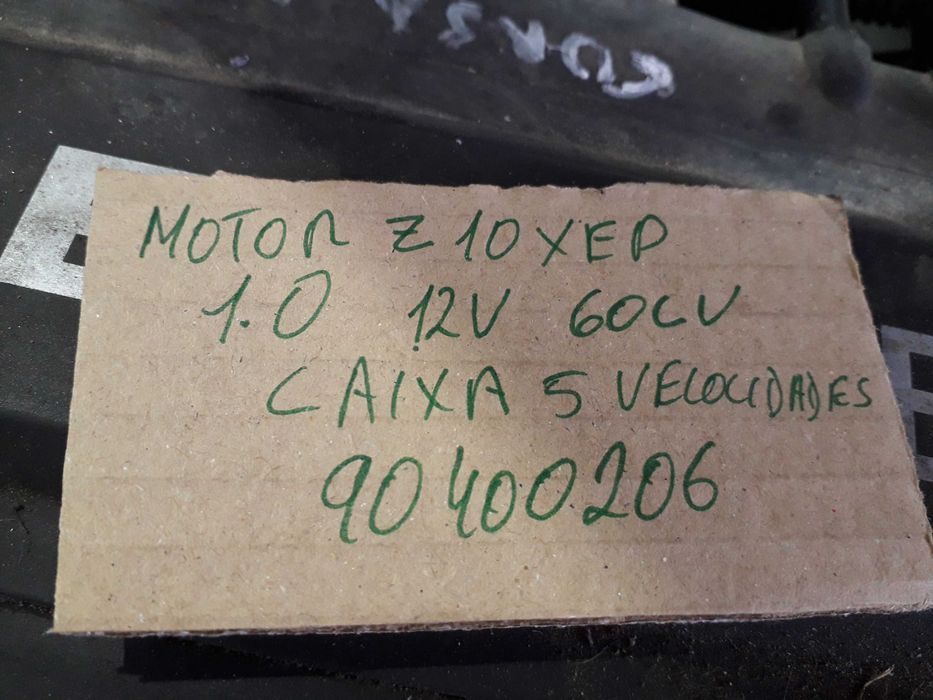 CORSA
MOTOR Z10XEP
1.0 12V 60CV
CAIXA 5 VELOCIDADES
90400206